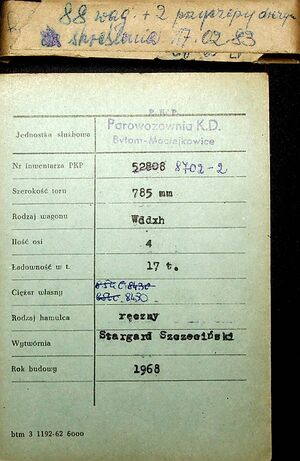 88 wag. + 2 przyczepy
skreślenia 17.02.83
P.K.P.
Jednostka służbowa Parowozownia K.D.
Bytom-Maciejkowice
Nr inwentarza PKP 52808 8702-2
Szerokość toru 785 mm
Rodzaj wagonu Wddxh
Ilość osi 4
Ładowność w t. 17 t.
Ciężar własny
Rodzaj hamulca ręczny
Wytwórnia Stargard Szczeciński
Rok budowy 1968
btm 3 1192-62 6000